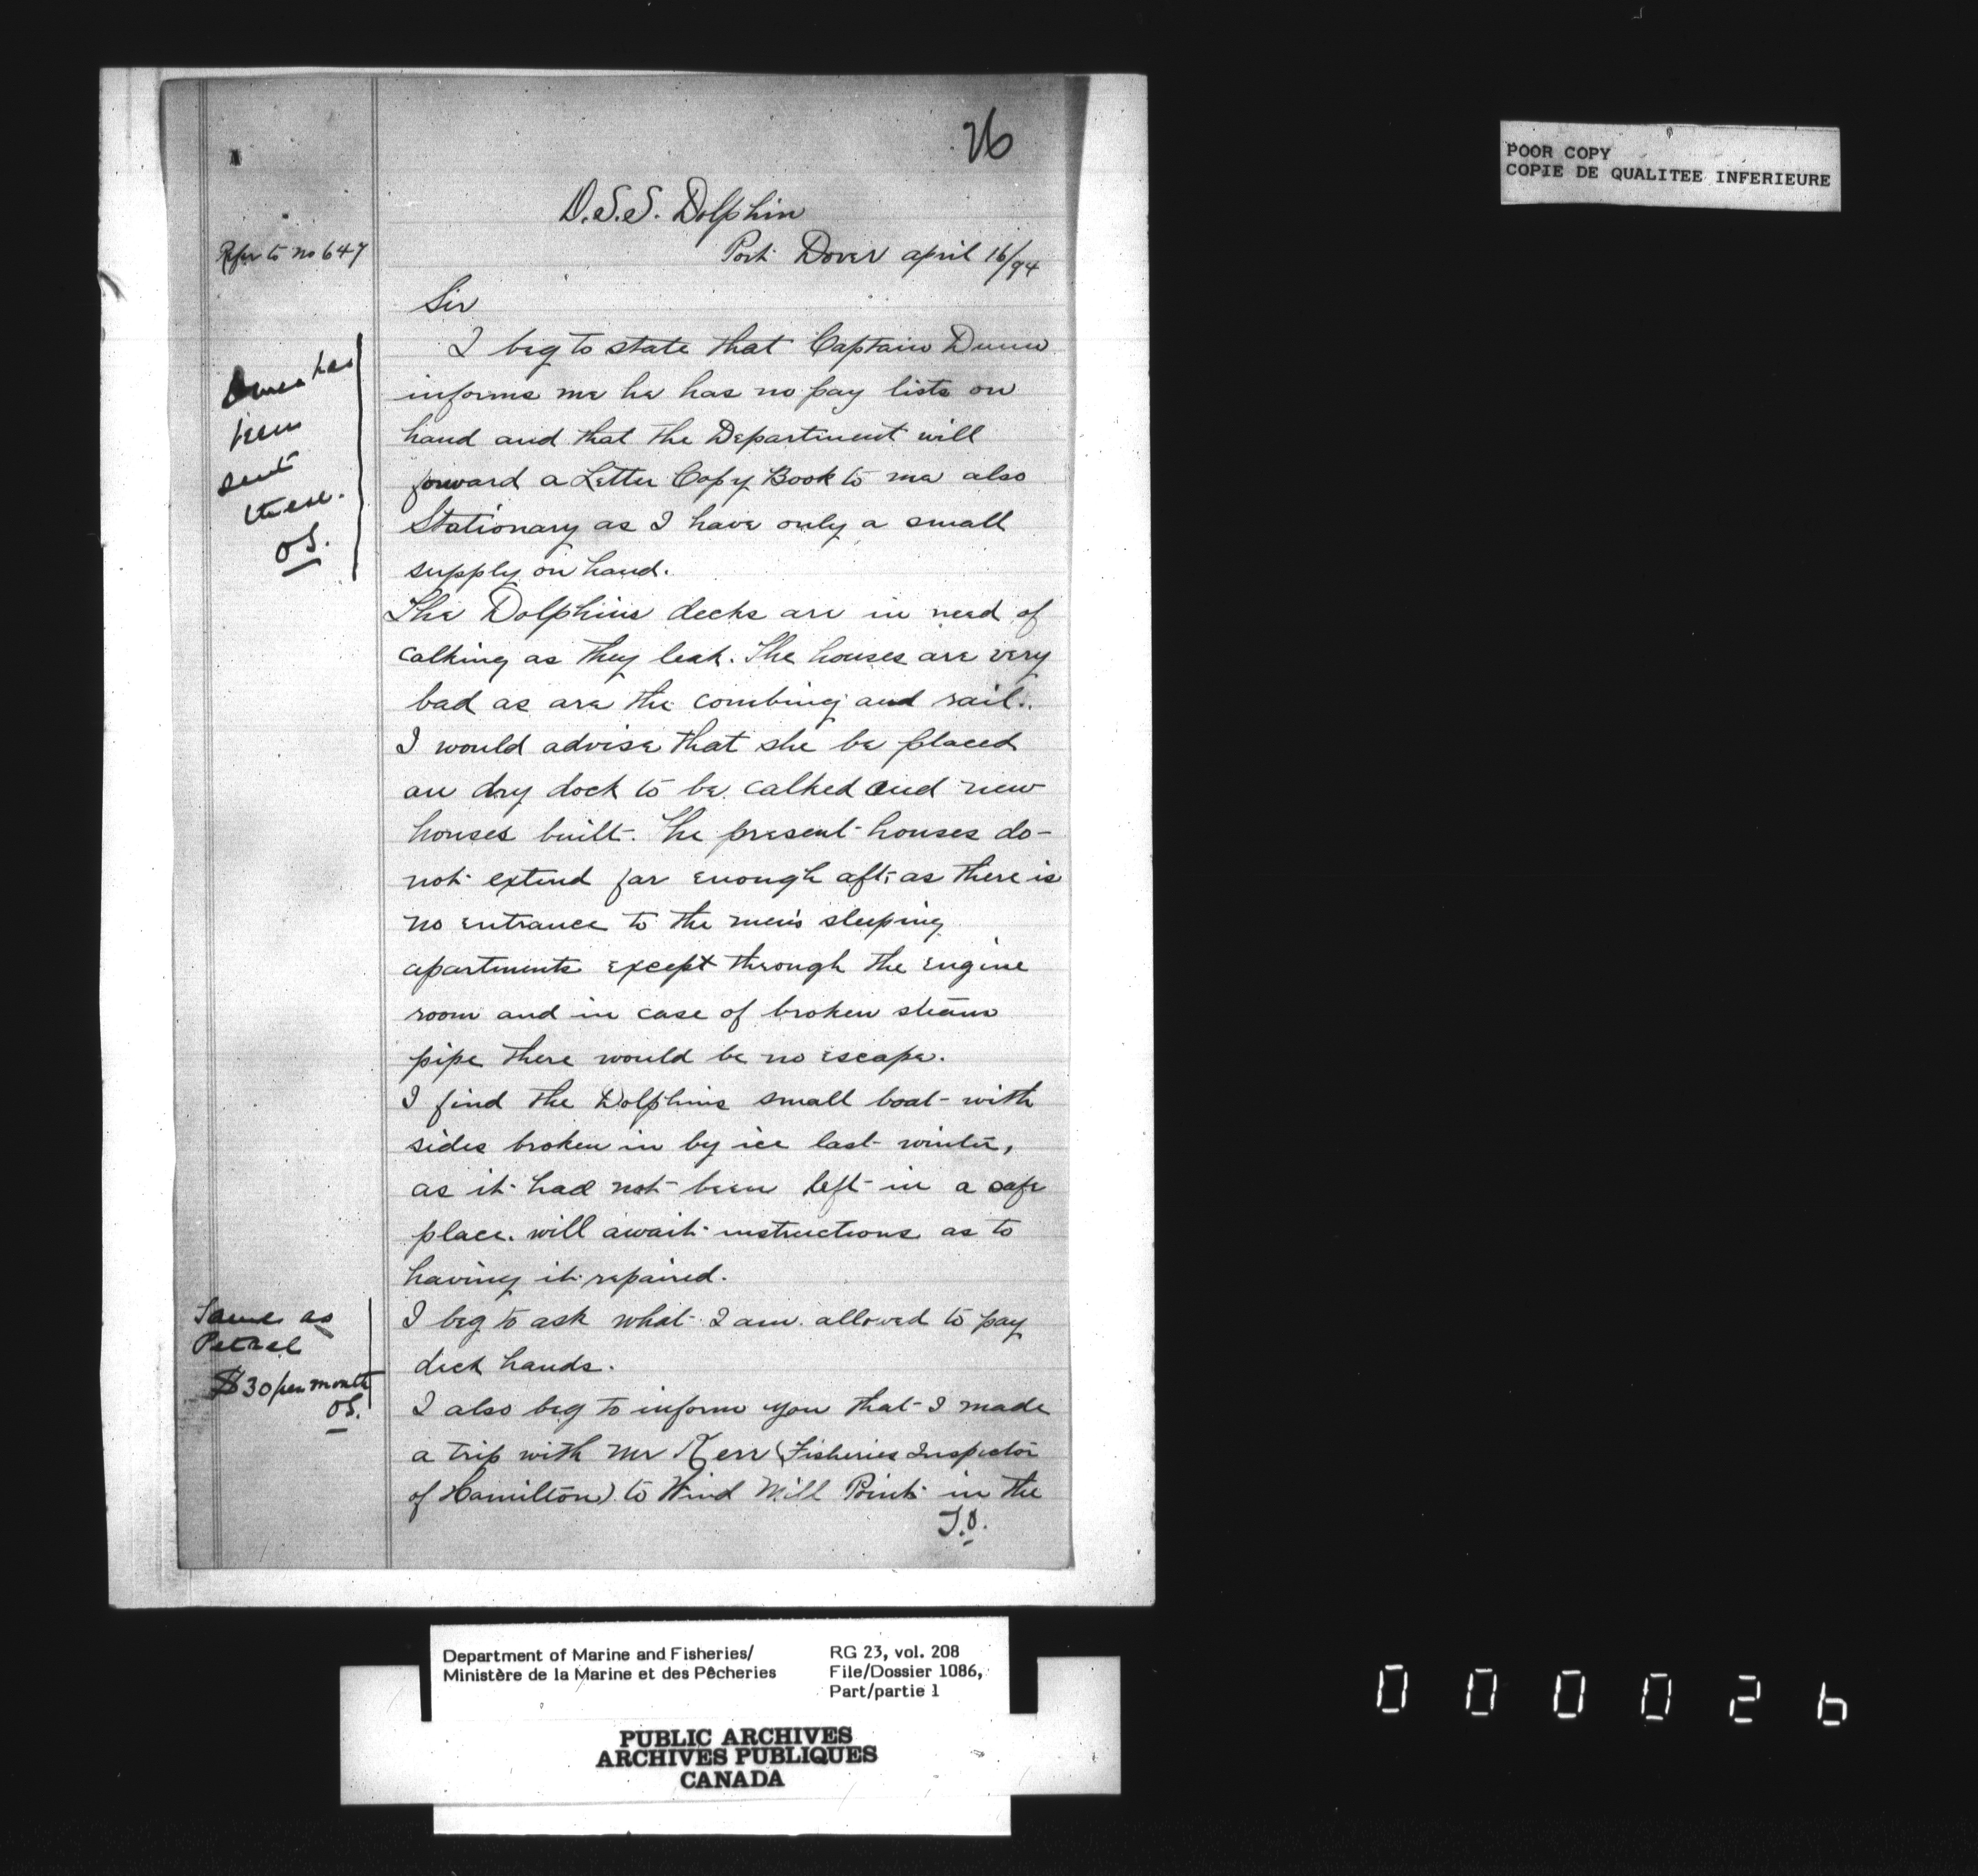 26
D.S.S. Dolphin
Refer to no 647
Port Dover april 16/94
Sir
I beg to state that Captain Dunn
informs me he has no pay lists on
hand and that the Department will
forward a Letter Copy Book to me also
Stationary as I have only a small
supply on hand.
has
been
sent
these.
OS.
The Dolphins decks are in need of
calking as they leak. The houses are very
bad as are the combing and rail.
I would advise that she be placed
on dry dock to be calked and new
houses built. The present houses do
not extend far enough aft, as there is
no entrance to the men's sleeping
apartments except through the engine
room and in case of broken steam
pipe there would be no escape.
I find the Dolphins small boat with
sides broken in by ice last winter,
as it had not been left in a safe
place. will await instructions as to
having it repaired.
I beg to ask what I am allowed to pay
deck hands.
Same as
Petrel
$30 per month
OS.
I also beg to inform you that I made
a trip with Mr Kerr (Fisheries Inspector
of Hamilton) to Wind Mill Point in the
T.O.
POOR COPY
COPIE DE QUALITEE INFERIEURE
Department of Marine and Fisheries/
Ministère de la Marine et des Pêcheries
RG 23, vol. 208
File/Dossier 1086,
Part/partie 1
PUBLIC ARCHIVES
ARCHIVES PUBLIQUES
CANADA
000026